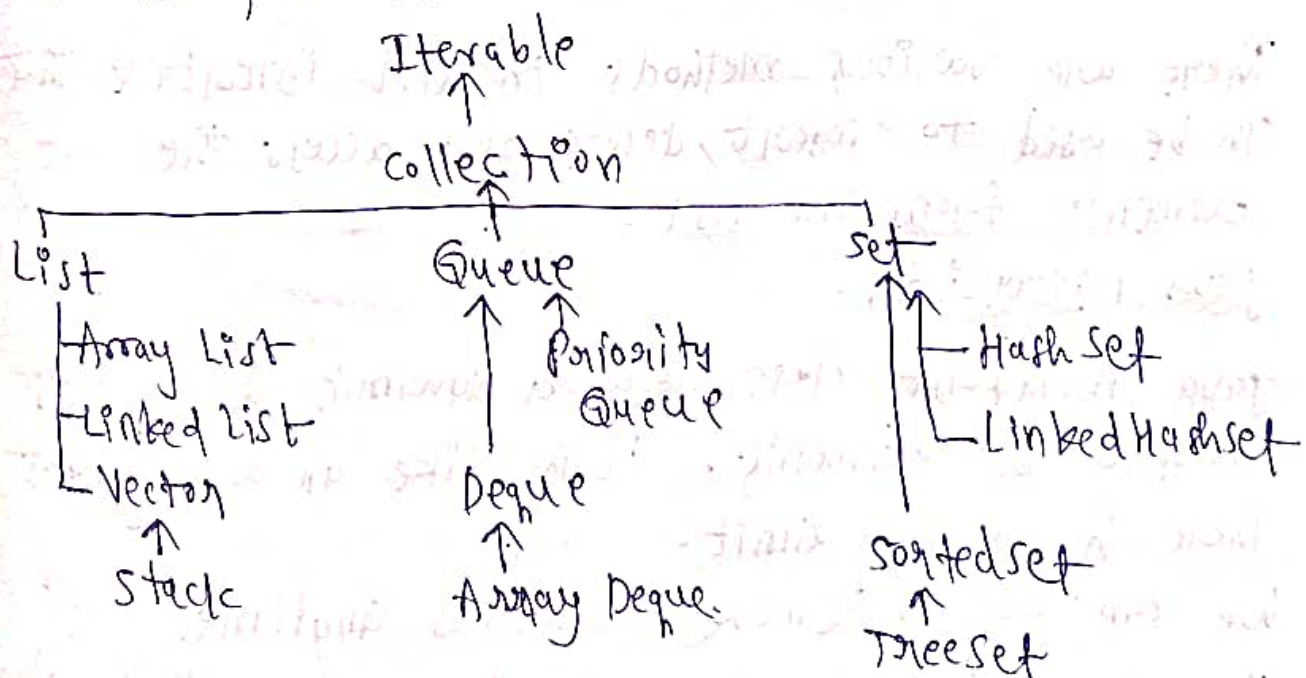 Iterable
Collection
List
Queue
Set
Array List
Linked List
Vector
Stack
Priority
Queue
Deque
Array Deque.
Hash Set
Linked Hashset
Sorted Set
TreeSet